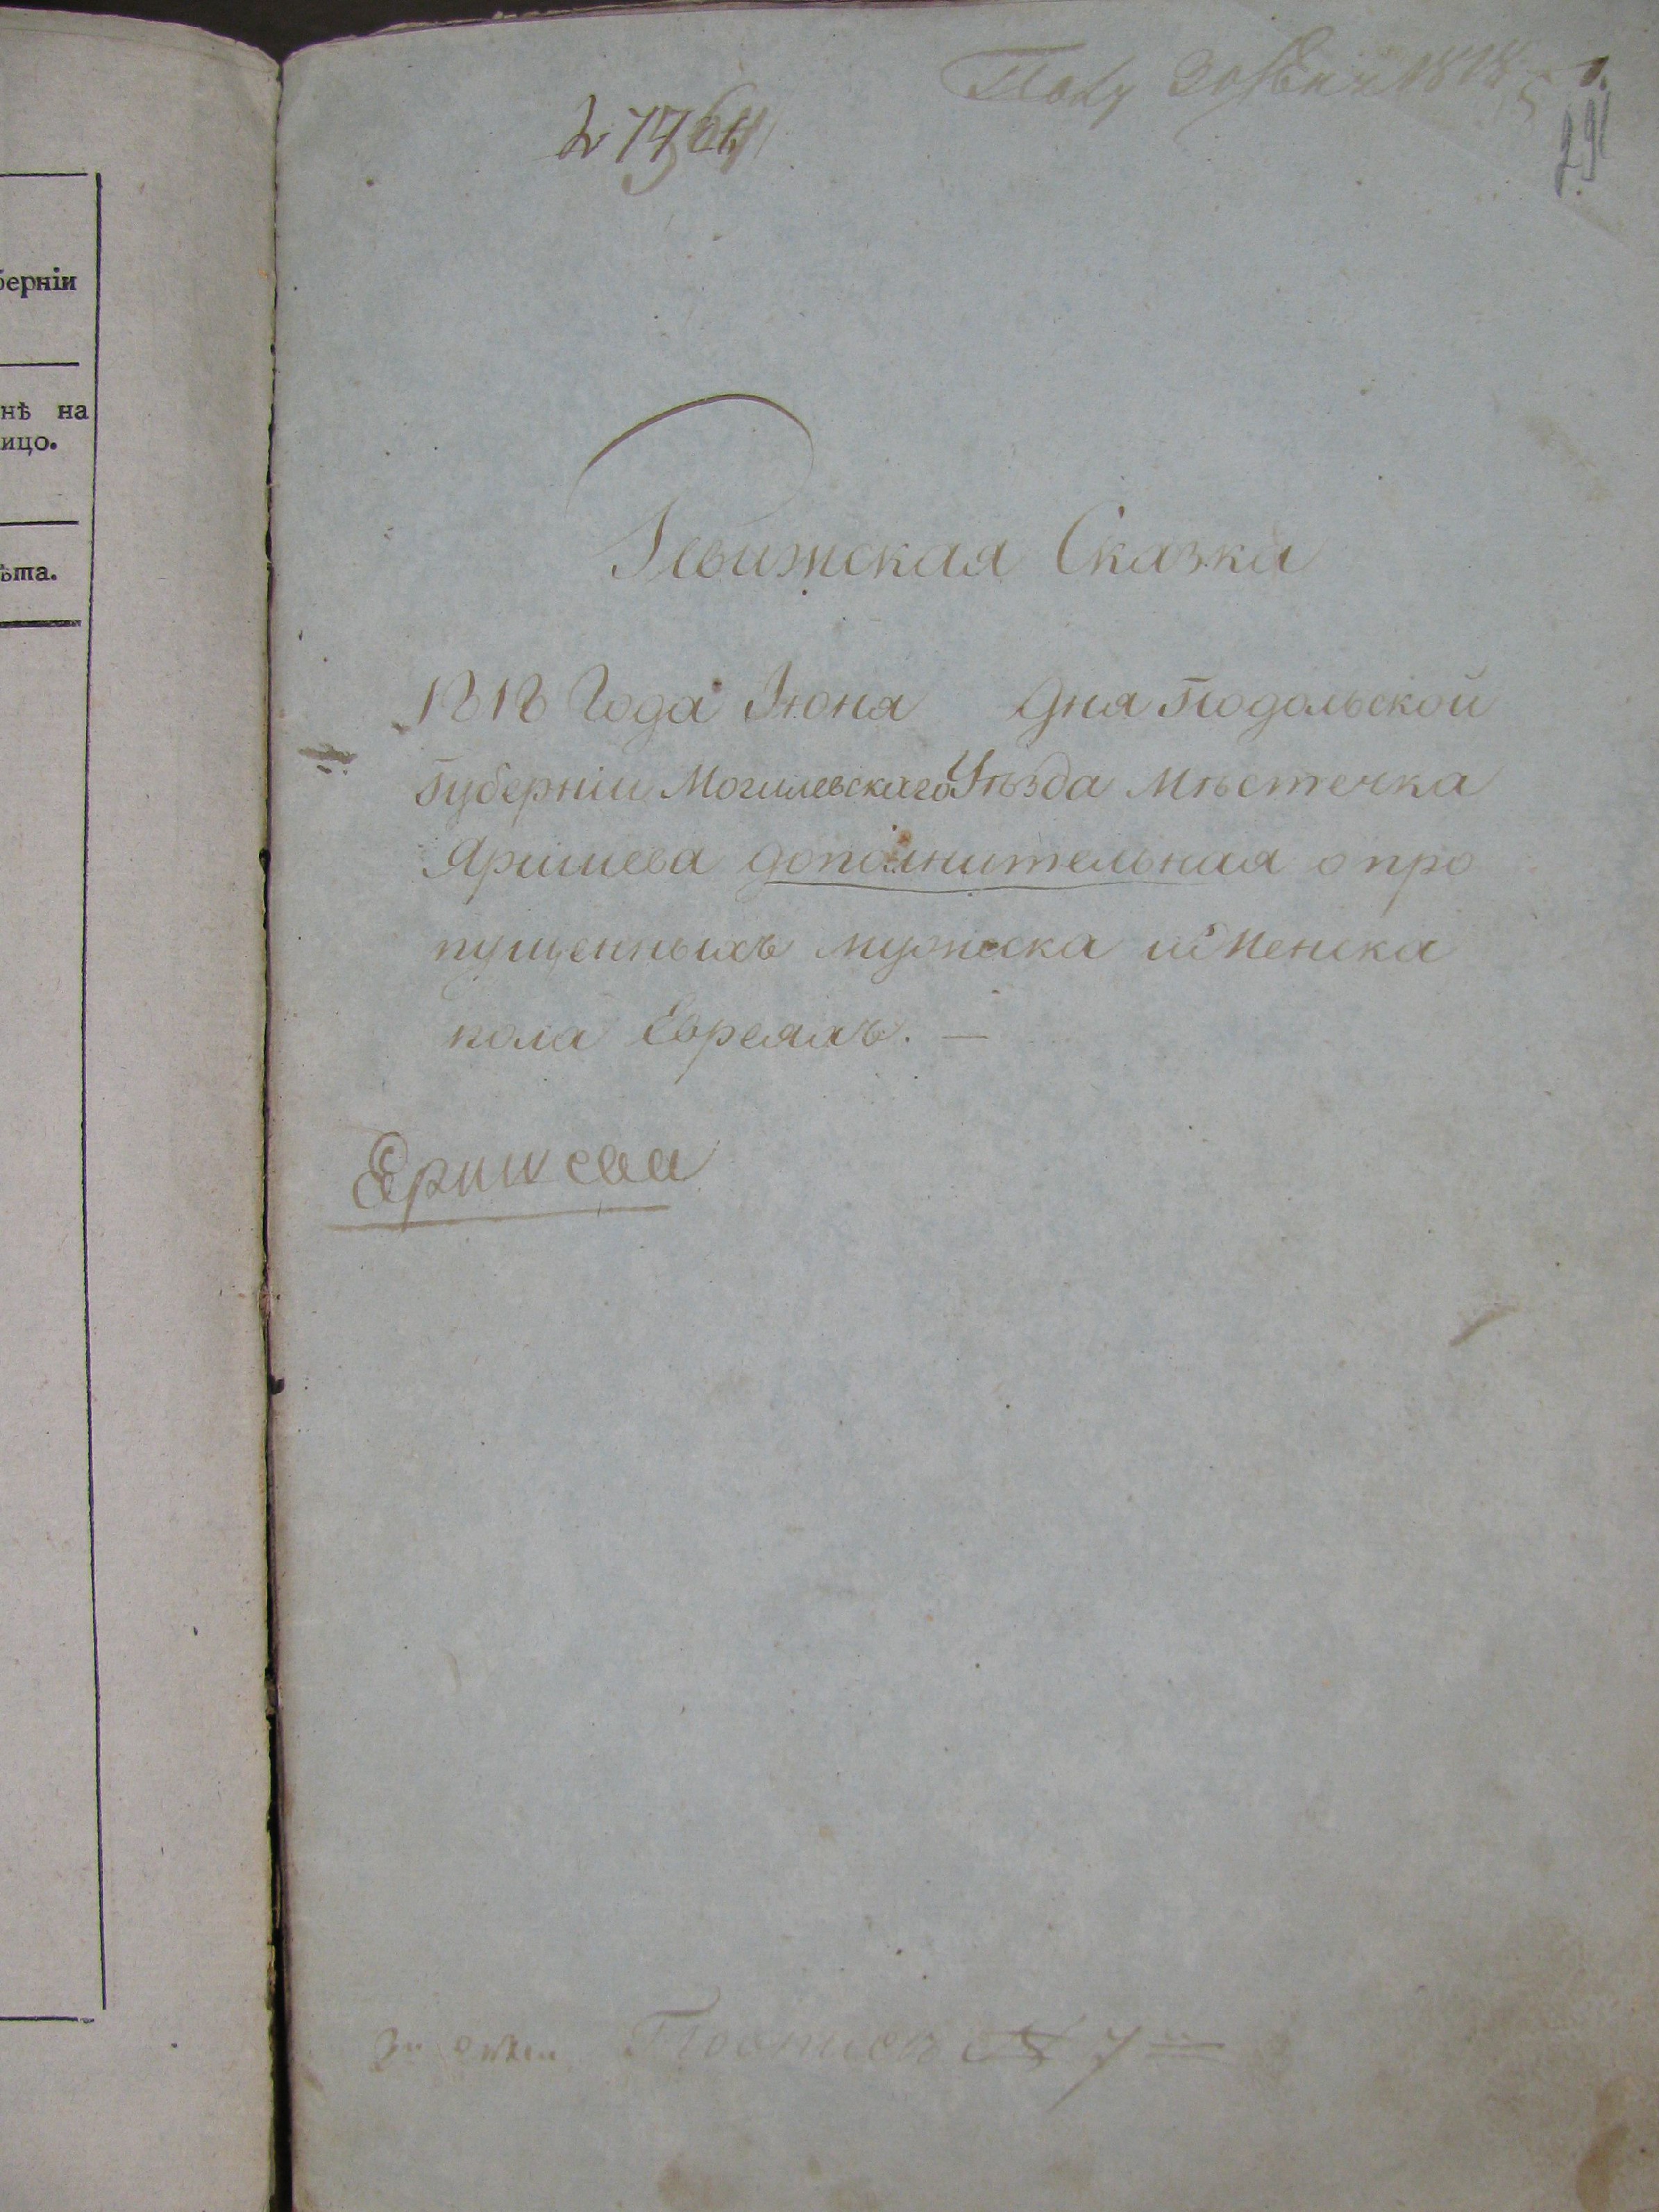 берніи
нѣ на
ицо.
ѣта.
1818
291
Ревижская Сказка
1818 Года Июня Дня Подольской
Губерніи Могилевскаго Уѣзда Мѣстечка
Яришева дополнительная о про
пущенныхъ мужеска и женска
пола Евреяхъ. —
Еришева
№ 7